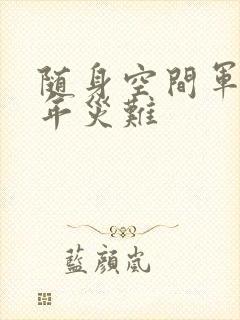 随身空間軍
年災難
藍顏嵐